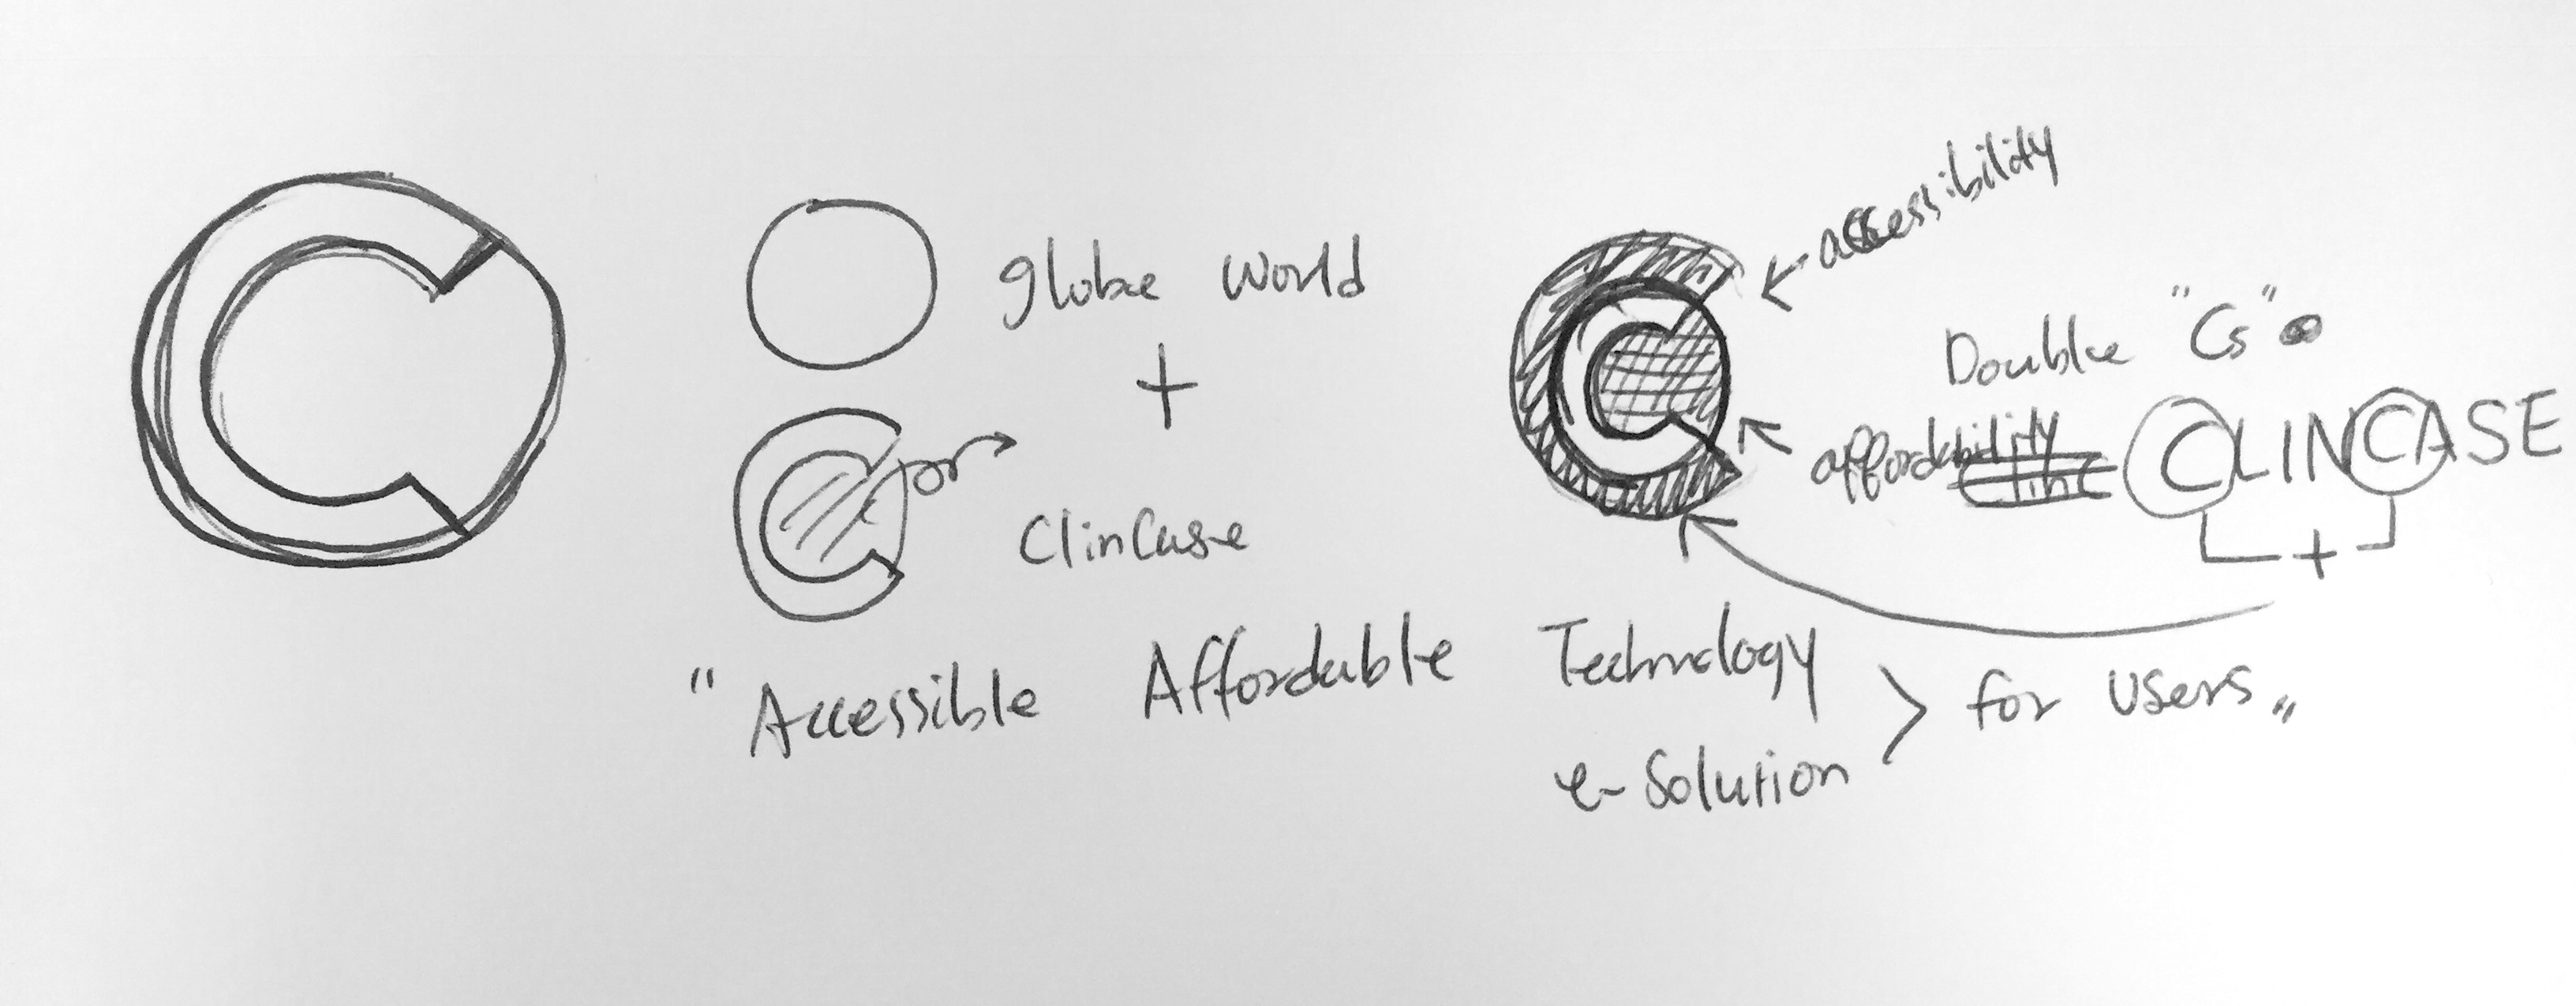 globe world
+
or
ClinCase
accessibility
Double "Cs"
affordability
CLINCASE
+
" Accessible Affordable Technology
e-Solution > for users "